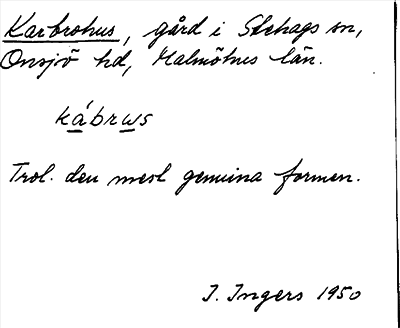 Karbrohus, gård i Stehags sn,
Onsjö hd, Malmöhus län.
kábrws
Trol. den mest genuina formen.
I. Ingers 1950